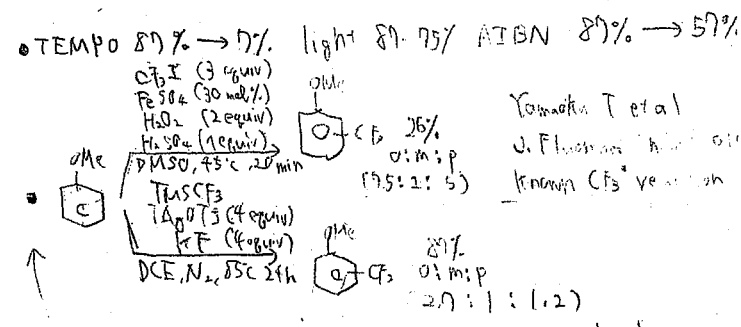 • TEMPO 87% → 7%  light 87. 75%  AIBN 87% → 57%
CF3I (3 equiv)
FeSO4 (30 mol%)
H2O2 (2 equiv)
H2SO4 (1 equiv)
DMSO, 45°C, 20 min
OMe
CF3 26%
o:m:p
Yamacka T et al
J. Fluorine
known CF3•
OMe
TMSCF3
AgOTf (4 equiv)
KF (4 equiv)
DCE, N2, 85°C 24h
OMe
CF3
87%
o:m:p
2.7 : 1 : 1.2)